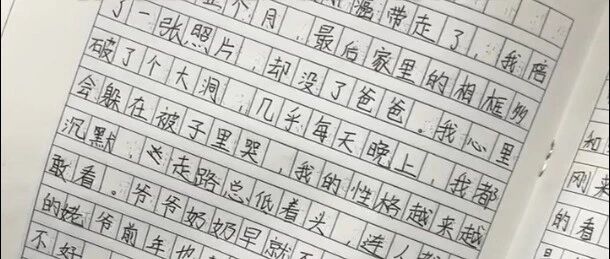 个月，最后，温带走了，我陪
了一张照片，却没了爸爸。家里的相框
破了个大洞，几乎每天晚上，我心里
会躲在被子里哭，我的性格越来越
沉默，走路总低着头，连人都
敢看。爷爷奶奶早就不
的姥爷前年也
不好
和
刚来
的看